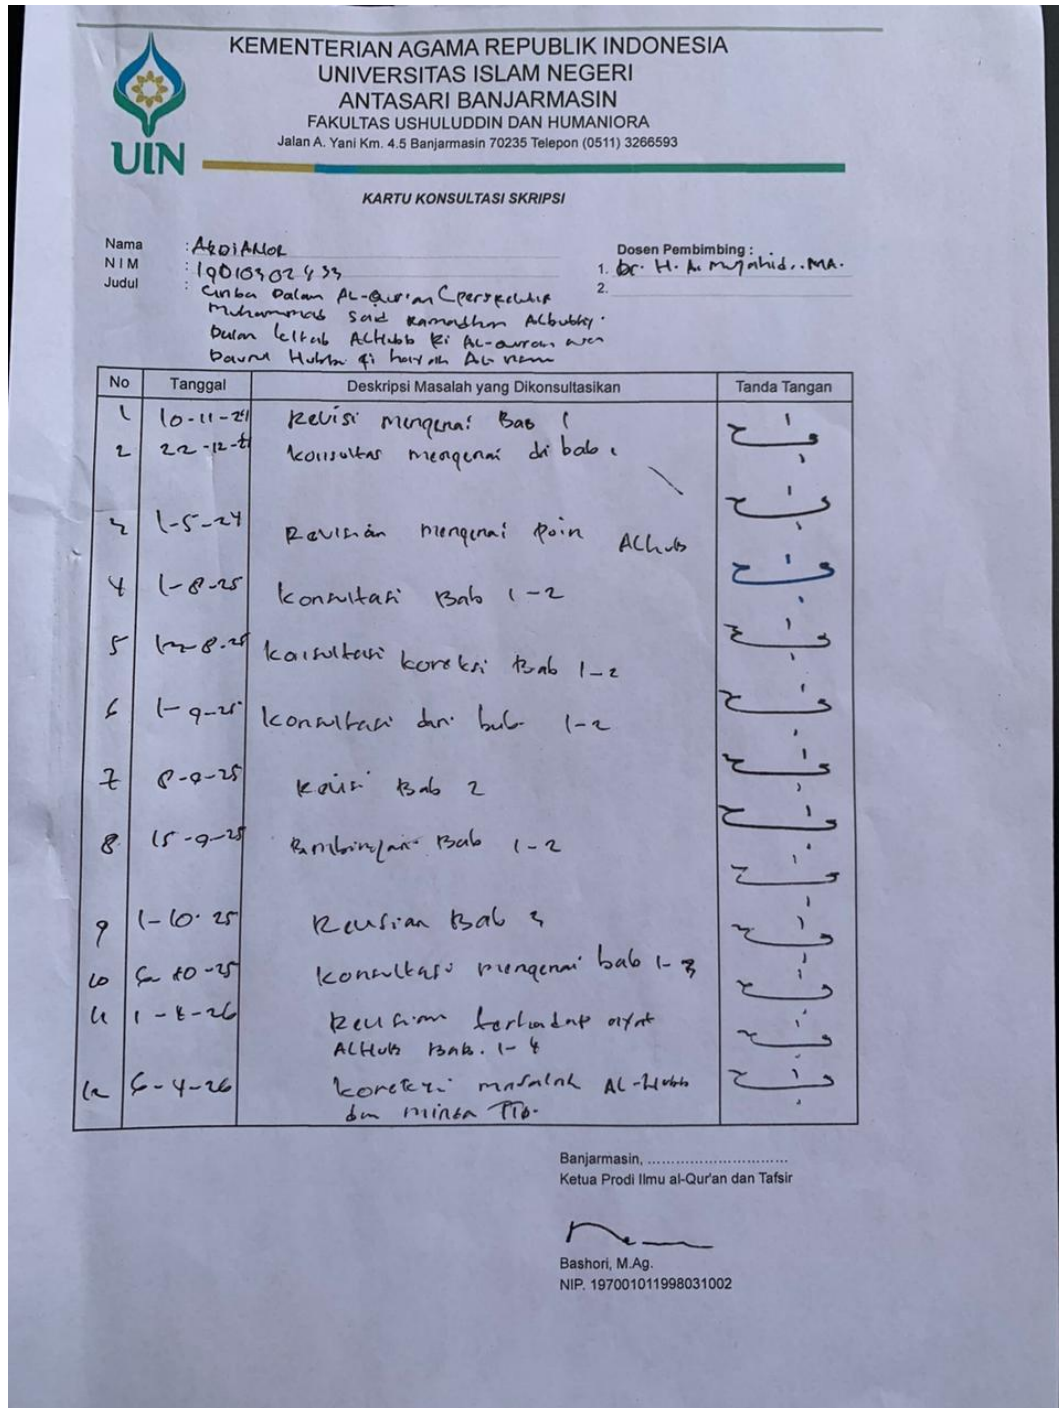 KEMENTERIAN AGAMA REPUBLIK INDONESIA
UNIVERSITAS ISLAM NEGERI
ANTASARI BANJARMASIN
FAKULTAS USHULUDDIN DAN HUMANIORA
Jalan A. Yani Km. 4.5 Banjarmasin 70235 Telepon (0511) 3266593
UIN
KARTU KONSULTASI SKRIPSI
Nama : ARDIANOR
NIM :
Judul : Cinta Dalam AL-Qur'an (perspektif
Muhammad Said Ramadhan Albuthy
Dalam kitab ALHubb Fi AL-Quran
Dosen Pembimbing :
1. Dr. H. A. Mujahid, MA.
2.
No Tanggal Deskripsi Masalah yang Dikonsultasikan Tanda Tangan
1 Revisi mengenai Bab 1
2 konsultas mengenai di bab
3 1-5-24 Revisian mengenai Poin ALhub
4 1-8-25 konsultasi Bab 1-2
5 konsultasi koreksi Bab 1-2
6 1-9-25 konsultasi dari bab 1-2
7 8-9-25 Revisi Bab 2
8 15-9-25 Bimbingan Bab 1-2
9 1-10-25 Revisian Bab 3
10 konsultasi mengenai bab 1-3
11 Revisian terhadap ayat
ALHub Bab. 1-4
12 6-4-26 koreksi masalah AL-Hubb
dan minta TTD.
Banjarmasin, ..............................
Ketua Prodi Ilmu al-Qur'an dan Tafsir
Bashori, M.Ag.
NIP. 197001011998031002